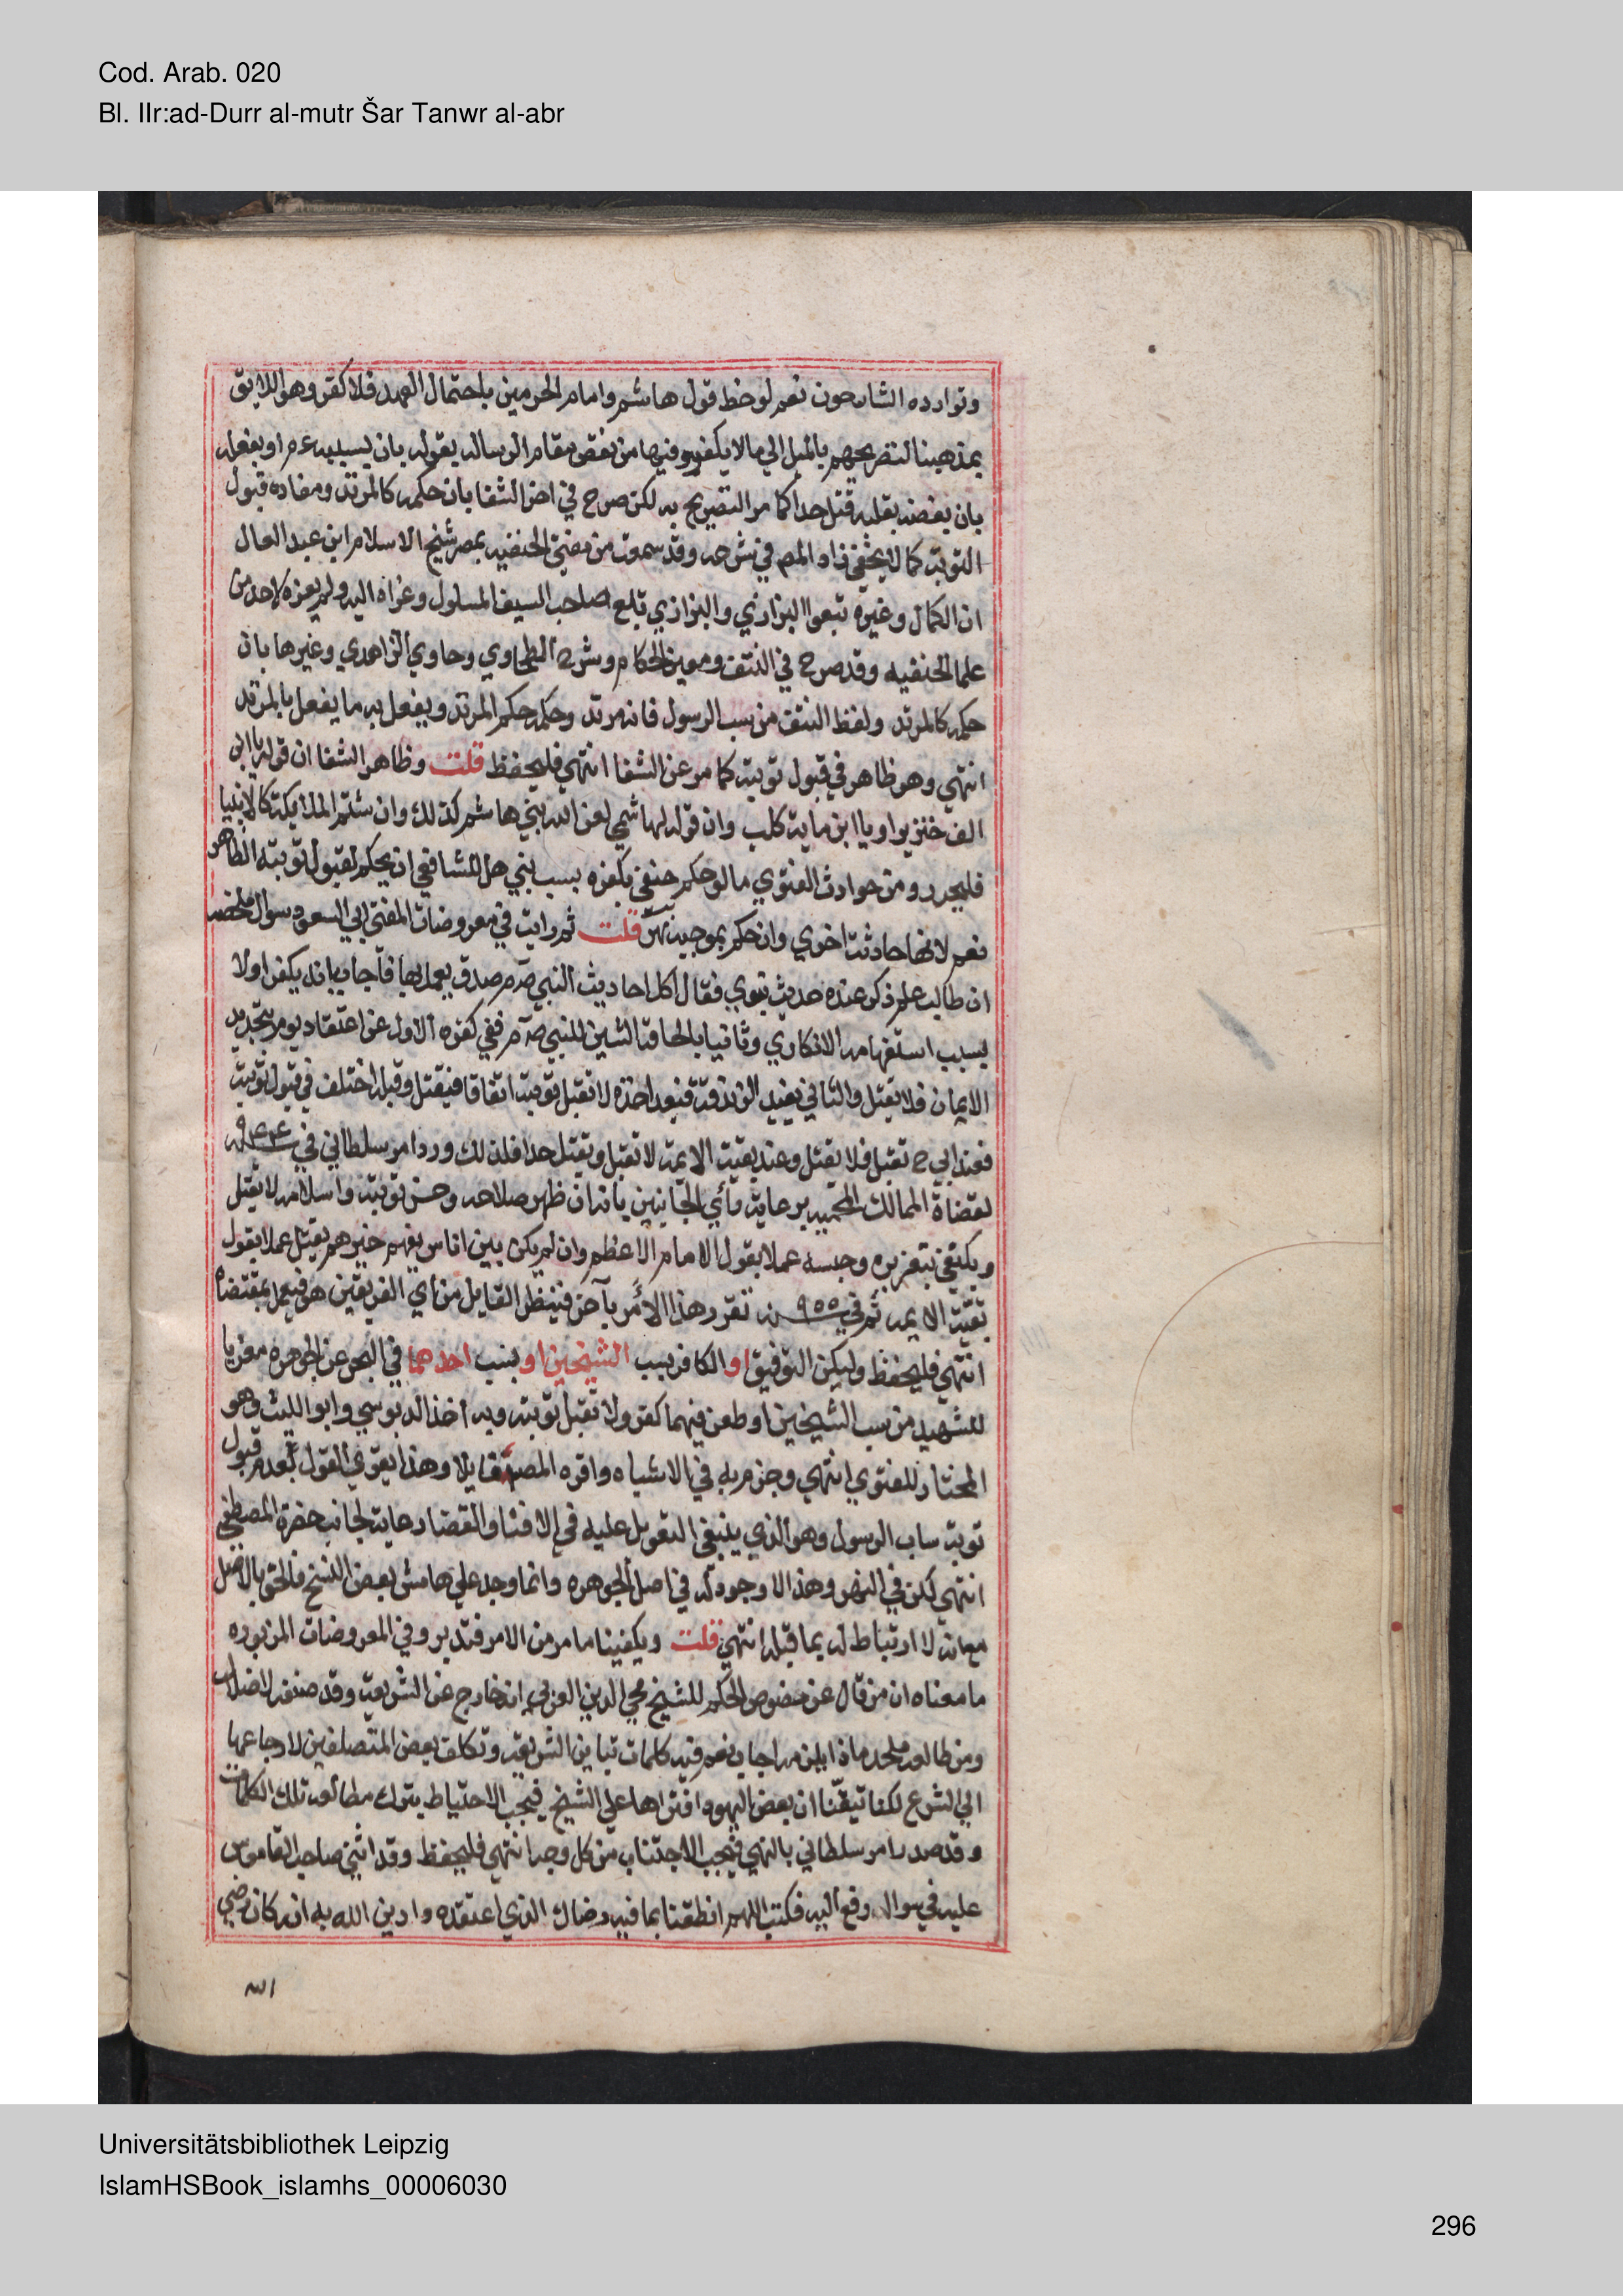 Cod. Arab. 020
Bl. IIr:ad-Durr al-mutr Šar Tanwr al-abr
وتوارده الشارحون نعم لوحظ قول هاشم وامام الحرمين باحتمال العهد فلا كفر وهو اللايق
بمذهبنا لتصريحهم بالميل الي مالا يكفر وفيها من نقص مقام الرساله بقوله بان يسبه عم او بفعله
بان بغضه بقلبه قتل حدا كما مر التصريح به لكن صرح في اخر الشفا بان حكمه كالمرتد ومفاده قبول
التوبة كما لا يخفي زاد المص في شرحه وقد سمعت من مفتي الحنفيه بمصر شيخ الاسلام ابن عبد العال
ان الكمال وغيره تبعوا البزازي والبزازي تبع صاحب السيف المسلول وعزاه اليه ولم يعزه لاحد من
علما الحنفيه وقد صرح في النتف ومعين الحكام وشرح الطحاوي وحاوي الزاهدي وغيرها بان
حكمه كالمرتد ولفظ النتف من سب الرسول فانه مرتد وحكمه حكم المرتد ويفعل به ما يفعل بالمرتد
انتهي وهو ظاهر في قبول توبته كما مر عن الشفا انتهي فليحفظ قلت وظاهر الشفا ان قوله يا ابن
الف خنزير او يا ابن ماية كلب وان قوله لهاشمي لعن الله بني هاشم كذلك وان شتم الملايكة كالانبيا
فليحرر ومن حوادث الفتوي ما لو حكم حنفي بكفره بسب نبي هل للشافعي ان يحكم بقبول توبته الظاهر
نعم لانها حادثة اخري وان حكم بموجبه نهر قلت ثم رايت في معروضات المفتي ابي السعود سوال ملخصه
ان طالب علم ذكر عنده حديث نبوي فقال اكل احاديث النبي صم صدق يعمل بها فاجاب بانه يكفر اولا
بسبب استفهامه الانكاري وثانيا بالحاقه الشين للنبي صم ففي كفره الاول عن اعتقاد يومر بتجديد
الايمان فلا يقتل والثاني يفيد الزندقة فبعد اخذه لا تقبل توبته اتفاقا فيقتل وقبله اختلف في قبول توبته
فعند ابي ح تقبل فلا يقتل وعند بقية الايمة لا تقبل ويقتل حدا فلذلك ورد امر سلطاني في سنة ٩٤٤
لقضاة الممالك المحميه برعاية رأي الجانبين بانه ان ظهر صلاحه وحسن توبته واسلامه لا يقتل
ويكتفي بتعزيره وحبسه عملا بقول الامام الاعظم وان لم يكن من اناس يفهم خيرهم يقتل عملا بقول
بقية الايمه ثم في سنة ٩٥٥ تقرر هذا الأمر بآخر فينظر القايل من أي الفريقين هو فيعمل بمقتضاه
انتهي فليحفظ وليكن التوفيق او الكافر بسب الشيخين او بسب احدهما في البحر عن الجوهره معزيا
للشهيد من سب الشيخين او طعن فيهما كفر ولا تقبل توبته وبه اخذ الدبوسي وابو الليث وهو
المختار للفتوي انتهي وجزم به في الاشباه واقره المصنف قايلا وهذا يقوي القول بعدم قبول
توبة ساب الرسول وهو الذي ينبغي التعويل عليه في الافتا والقضا رعاية لجانب حضرة المصطفي
انتهي لكن في النهر وهذا لا وجود له في اصل الجوهره وانما وجد علي هامش بعض النسخ فالحق بالاصل
مع انه لا ارتباط له بما قبله انتهي قلت ويكفينا ما مر من الامر فتدبر وفي المعروضات المزبوره
ما معناه ان من قال عن فصوص الحكم للشيخ محي الدين العربي انه خارج عن الشريعة وقد صنفه لاضلال
ومن طالعه ملحد ماذا يلزمه اجاب نعم فيه كلمات تباين الشريعة وتكلف بعض المتصلفين لارجاعها
الي الشرع لكنا تيقنا ان بعض اليهود افتراها علي الشيخ فيجب الاحتياط بترك مطالعة تلك الكلمات
وقد صدر امر سلطاني بالنهي فيجب الاجتناب من كل وجه انتهي فليحفظ وقد اثني صاحب القاموس
عليه في سوال رفع اليه فكتب اللهم انطقنا بما فيه رضاك الذي اعتقده وادين الله به انه كان رضي
الله
Universitätsbibliothek Leipzig
IslamHSBook_islamhs_00006030
296